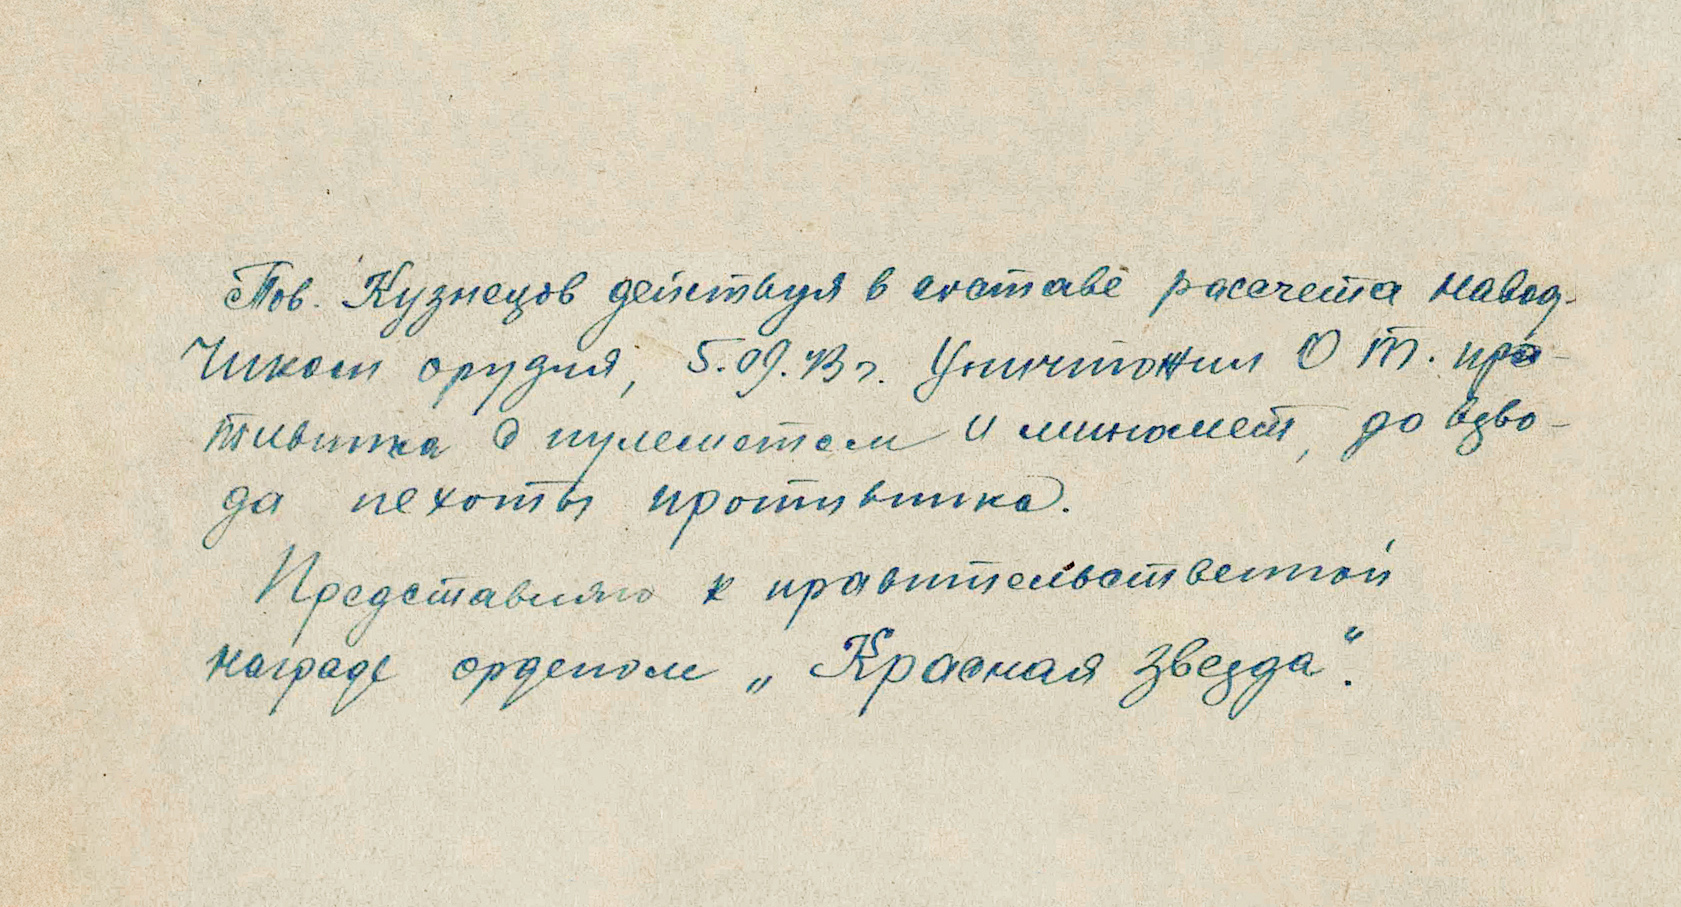 Тов. Кузнецов действуя в составе рассчета навод-
чиком орудия, 5.09.43 г. Уничтожил О Т. про-
тивника с пулеметом и миномет, до взво-
да пехоты противника.
Представляю к правительственной
награде орденом „Красная звезда“.